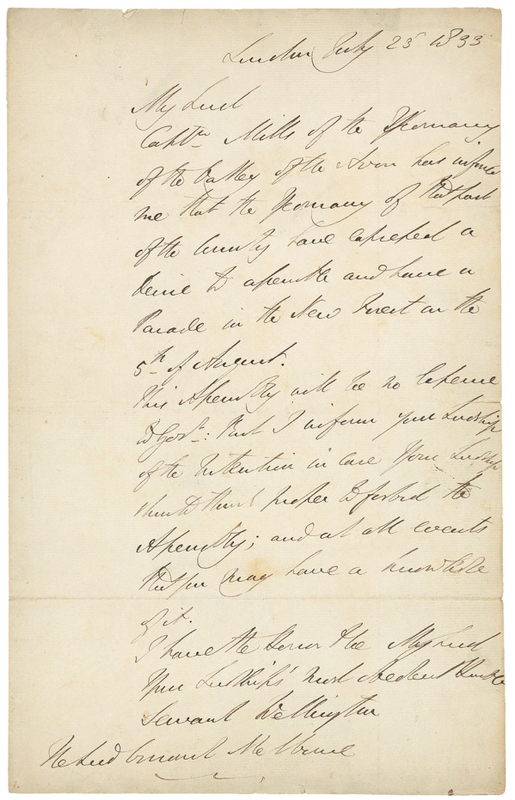 London July 25 1833
My Lord
Captn Mills of the Yeomanry
of the Valley of the Avon has informed
me that the Yeomanry of that part
of the County have expressed a
desire to assemble and have a
Parade in the New Forest on the
5th of August.
This Assembly will be no Expence
to Govt: But I inform your Lordship
of the Intention in case Your Lordship
should think proper to forbid the
Assembly; and at all events
that you may have a knowledge
of it.
I have the Honor to be My Lord
Your Lordship's most obedient Humble
Servant Wellington
The Lord Viscount Melbourne